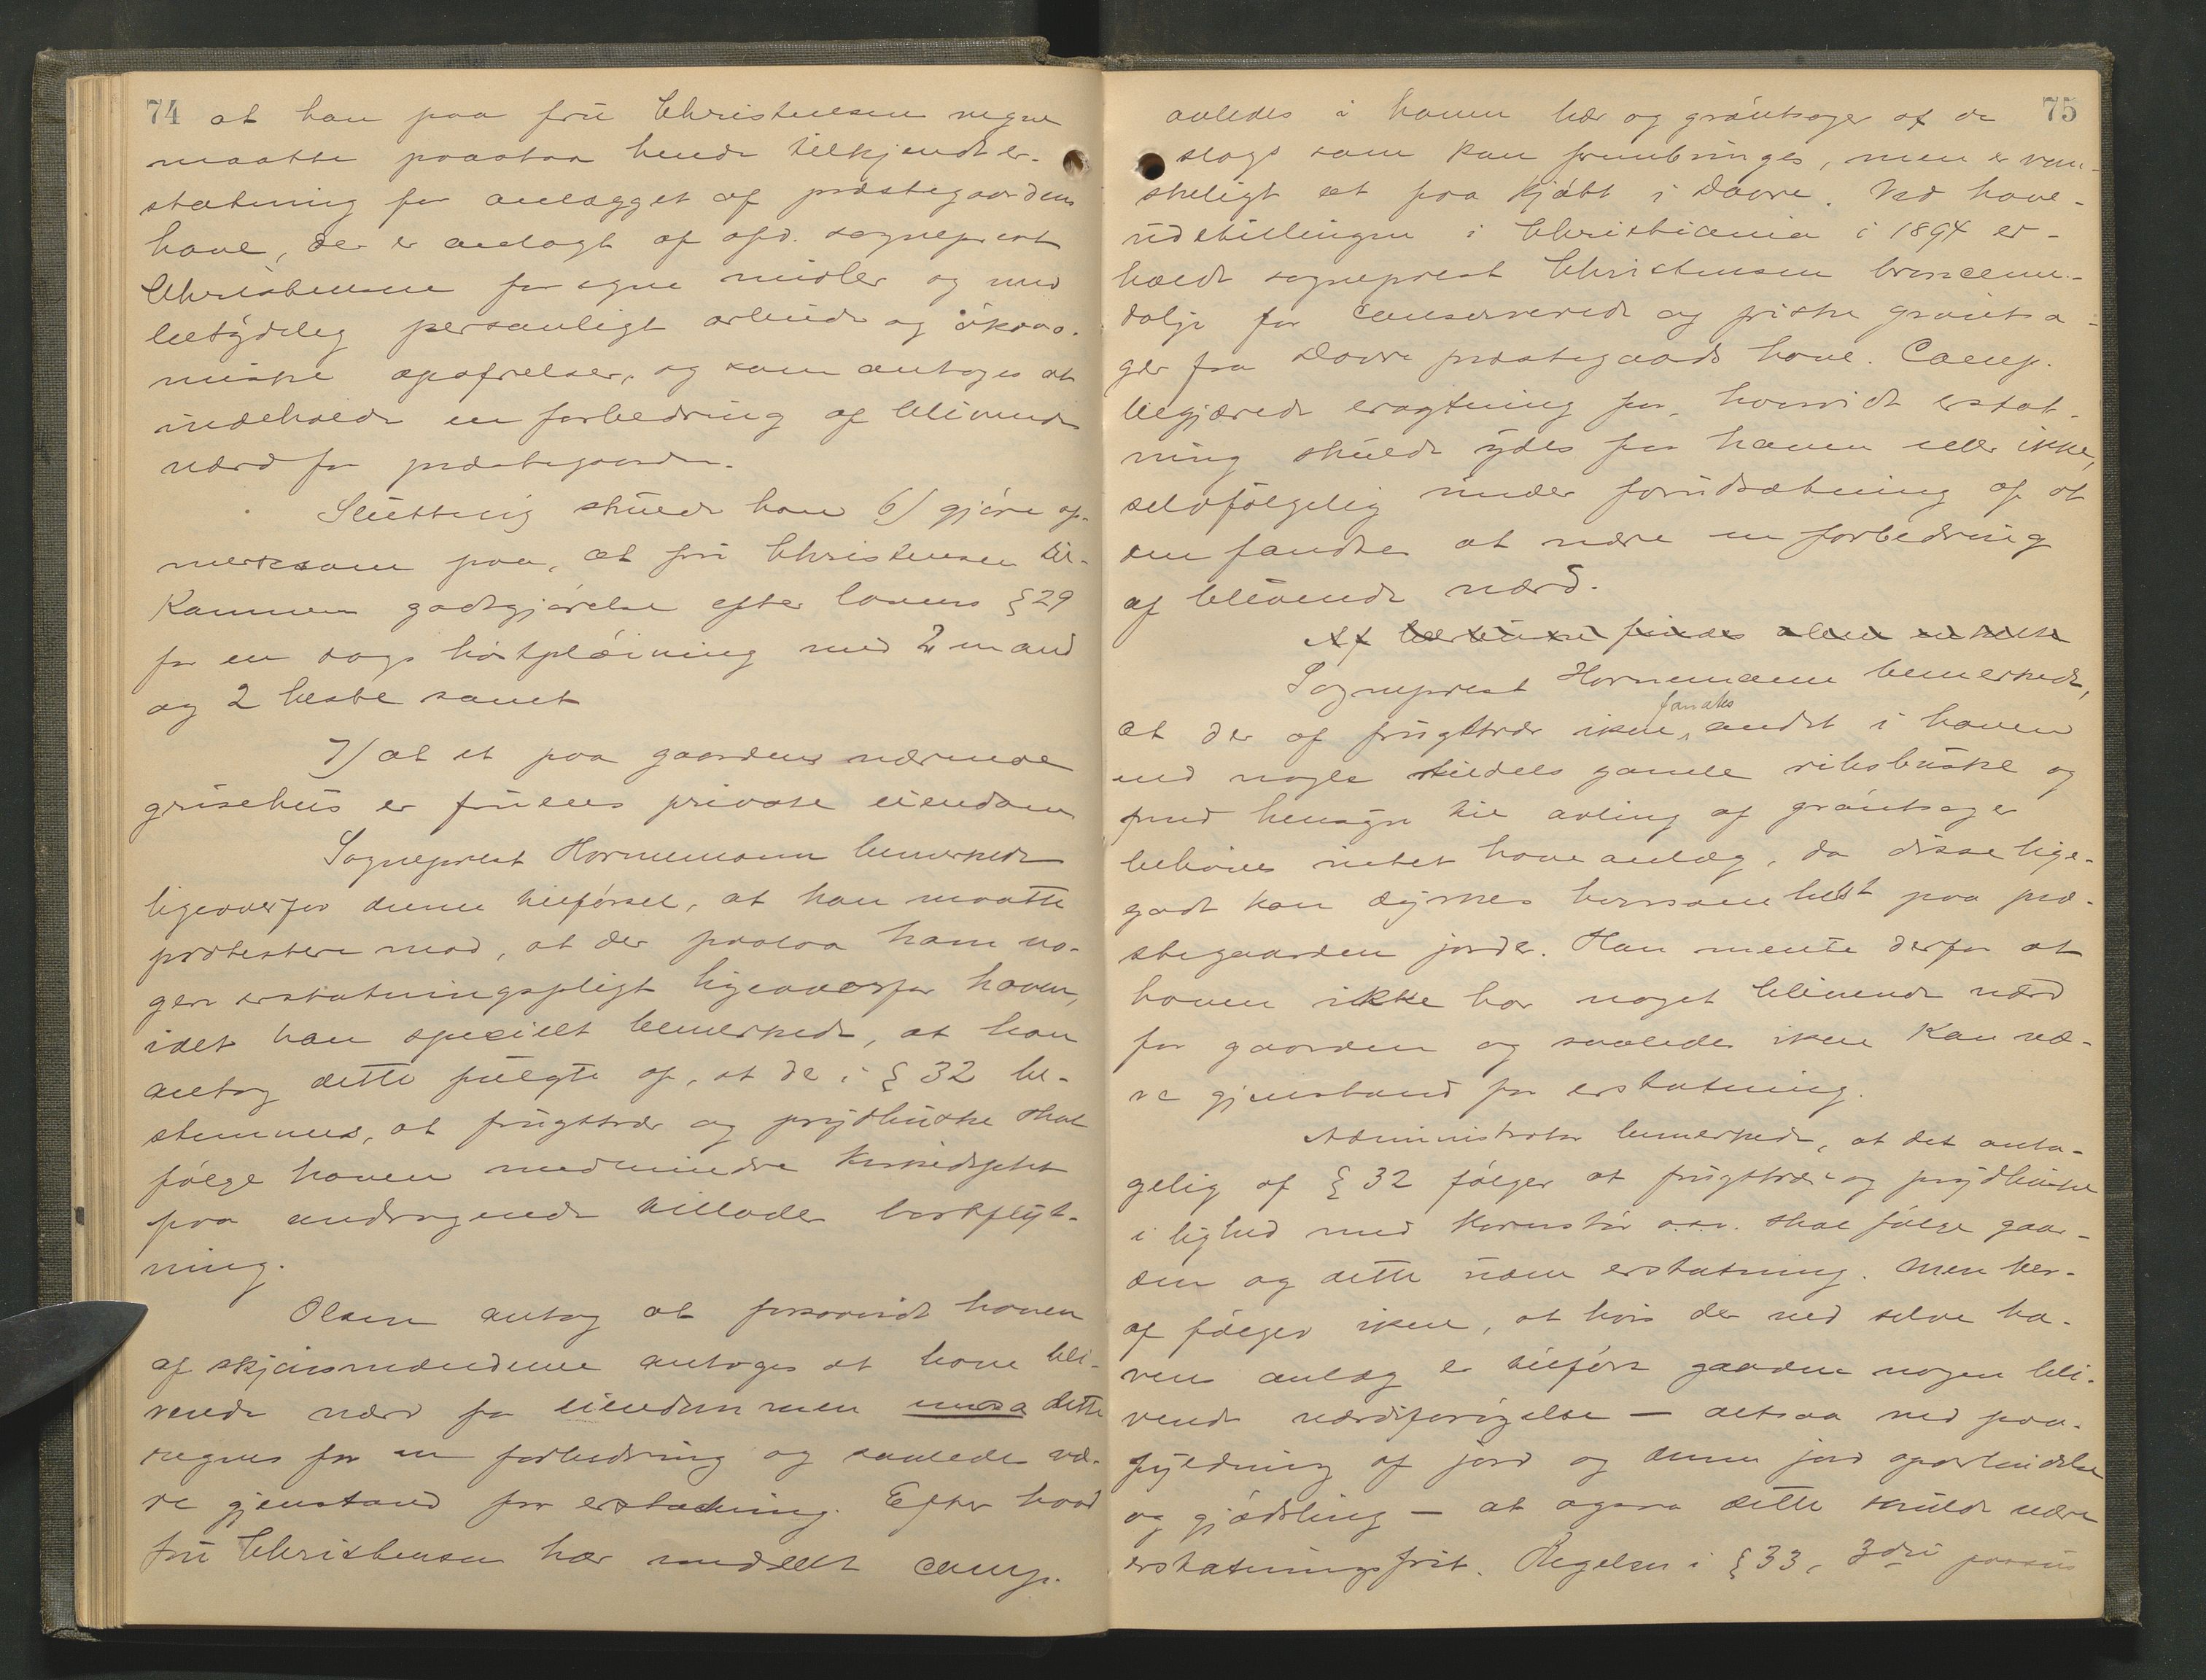 74
at han paa frü Christensens vegne
maatte paastaa hende tilkjendt er-
statning for anlægget af præstegaardens
have, der er anlagt af afd. sogneprest
Christensen for egne midler og med
betÿdelig personligt arbeide og økono-
miske opofrelser, og som antages at
indeholde en forbedring af blivende
værd for præstegaarden.
Slüttelig skülde han 6) gjøre op-
merksom paa, at frü Christensen til-
kommer godtgjørelse efter lovens § 29
for en dags høstpløining med 2 mand
og 2 heste samt
7) at et paa gaarden værende
grisehüs er früens private eiendom
Sogneprest Hornemann bemerkede
ligeoverfor denne tilførsel, at han maatte
protestere mod, at der paalaa ham no-
gen erstatningspligt ligeoverfor haven,
idet han specielt bemerkede, at han
antog dette fülgte af, at de i § 32 be-
stemmes, at frügttrær og prÿdbüske skal
følge haven medmindre Kirkedeptet
paa andragende tillader bortflÿt-
ning.
Olsen antog at forsaavidt haven
af skjønsmændene antages at have bli-
vende værd for eiendommen maa dette
regnes for en forbedring og saaledes væ-
re gjenstand for erstatning. Efter hvad
frü Christensen har meddelt comp.
75
avledes i haven bær og grøntsager af de
slags som kan frembringes, men er van-
skeligt at faa kjøbt i Dovre. Ved have-
üdstillingen i Christiania i 1894 er-
holdt sogneprest Christensen broncemé-
dalje for conserverede og friske grøntsa-
ger fra Dovre præstegaards have. Comp.
begjærede eragtning for, hvorvidt erstat-
ning skülde ÿdes for haven eller ikke,
selvfølgelig ünder forüdsætning af at
den fandtes at være en forbedring
af blivende værd.
Af bærbüske findes alene enkelte
Sogneprest Hornemann bemerkede,
at der af frügttrær ikke fandtes andet i haven
end nogle tildels gamle ribsbüske og
med hensyn til avling af grøntsager
behøves intet haveanlæg, da disse lige-
godt kan dÿrkes hvorsomhelst paa præ-
stegaarden jorder. Han mente derfor at
haven ikke har noget blivende værd
for gaarden og saaledes ikke kan væ-
re gjenstand for erstatning.
Administrator bemerkede, at det anta-
gelig af § 32 følger at frügttrær og prÿdbüske
i lighed med kornstør o.s.v. skal følge gaar-
den og dette üden erstatning. Men her-
af følger ikke, at hvis der ved selve ha-
vens anlæg er tilført gaarden nogen bli-
vende værdiforøgelse — altsaa ved paa-
fÿldning af jord og denne jord oparbeidelse
og gjødsling — at ogsaa dette skülde være
erstatningsfrit. Regelen i § 33, 3die passüs